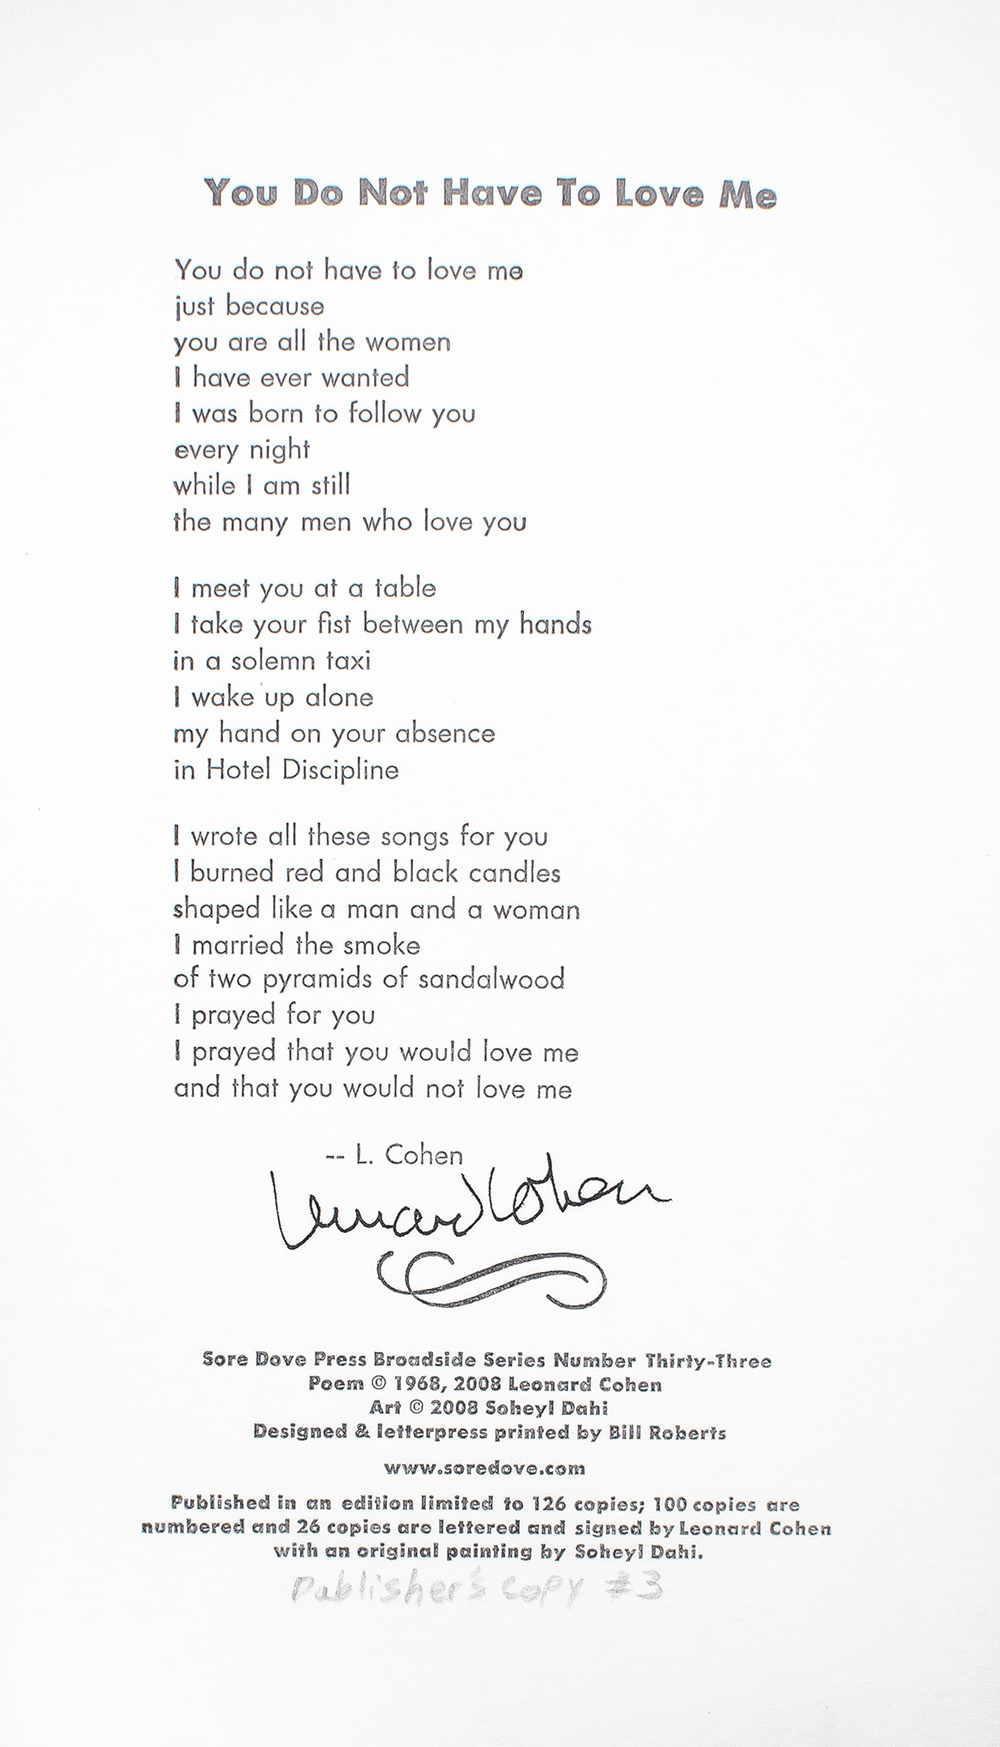 You Do Not Have To Love Me
You do not have to love me
just because
you are all the women
I have ever wanted
I was born to follow you
every night
while I am still
the many men who love you
I meet you at a table
I take your fist between my hands
in a solemn taxi
I wake up alone
my hand on your absence
in Hotel Discipline
I wrote all these songs for you
I burned red and black candles
shaped like a man and a woman
I married the smoke
of two pyramids of sandalwood
I prayed for you
I prayed that you would love me
and that you would not love me
-- L. Cohen
Leonard Cohen
Sore Dove Press Broadside Series Number Thirty-Three
Poem © 1968, 2008 Leonard Cohen
Art © 2008 Soheyl Dahi
Designed & letterpress printed by Bill Roberts
www.soredove.com
Published in an edition limited to 126 copies; 100 copies are
numbered and 26 copies are lettered and signed by Leonard Cohen
with an original painting by Soheyl Dahi.
Publisher's copy #3